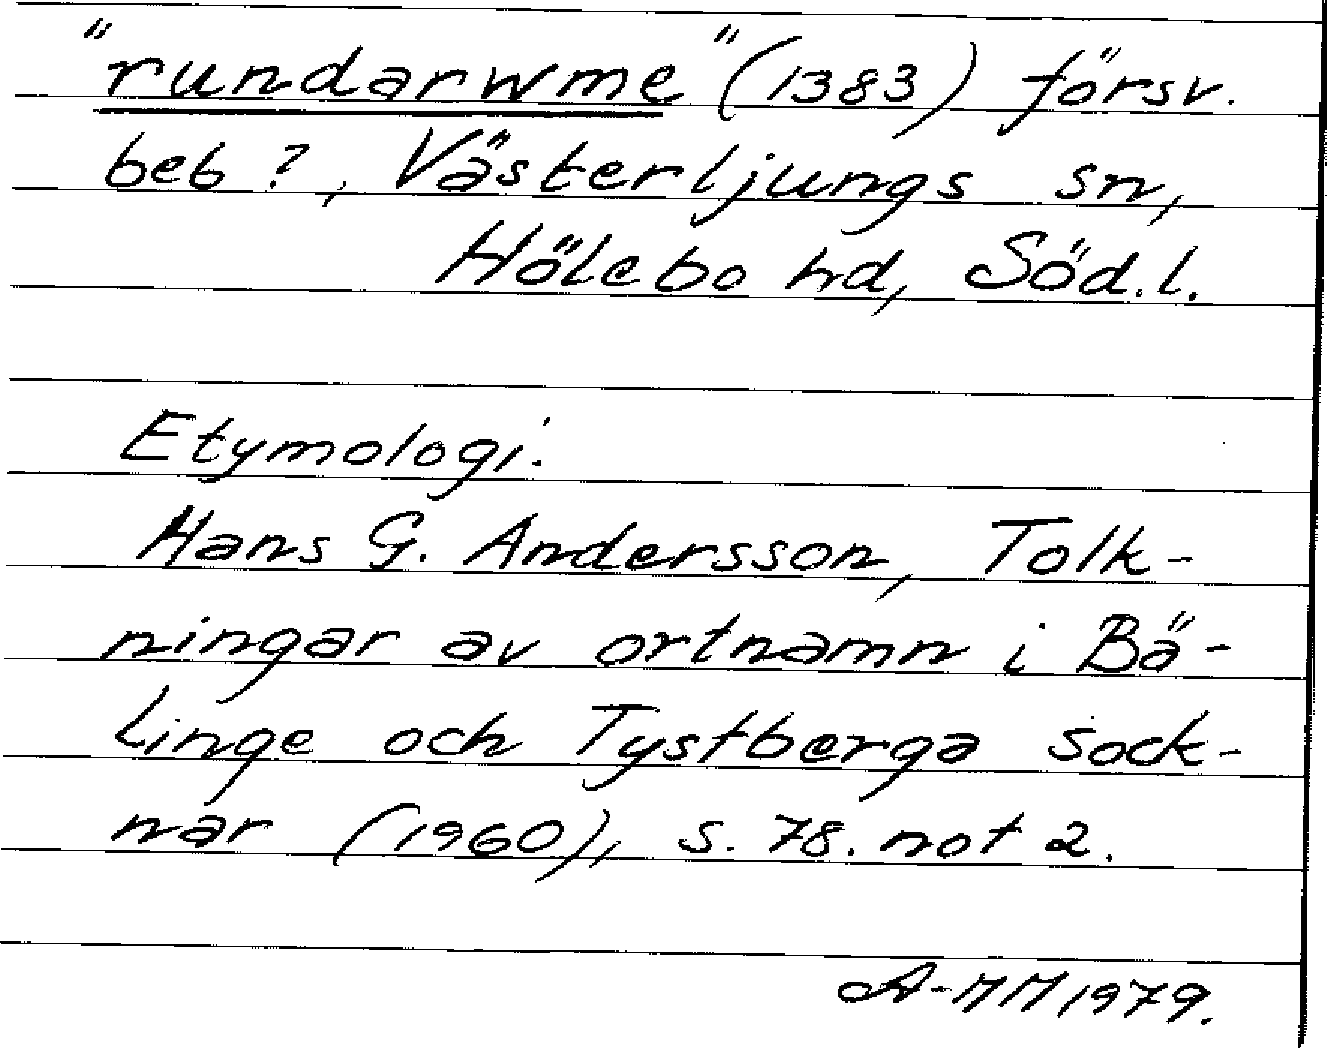 "rundarwme" (1383) försv.
beb ?, Västerljungs sn,
Hölebo hd, Söd.l.
Etymologi:
Hans G. Andersson, Tolk-
ningar av ortnamn i Bä-
linge och Tystberga sock-
nar (1960), s. 78. not 2.
A-MM 1979.